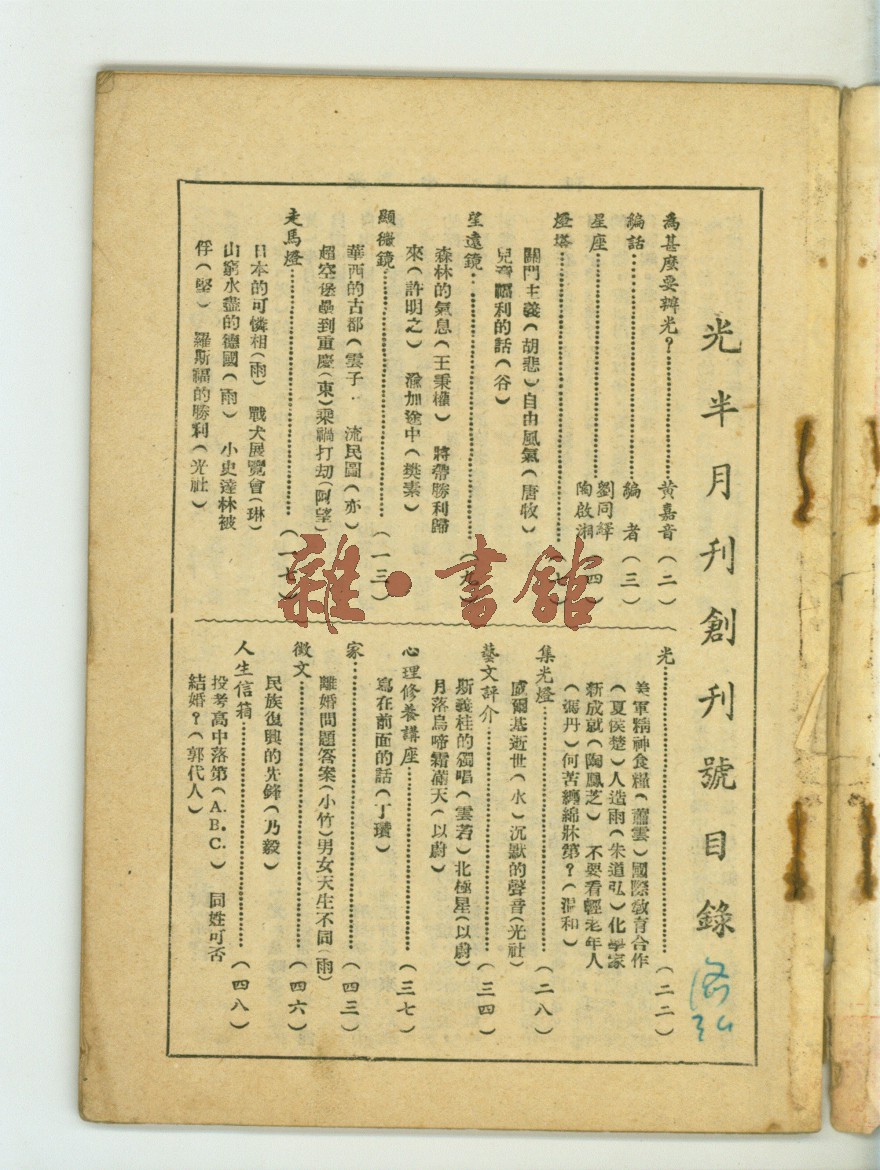 光半月刊創刊號目錄
為甚麼要辦光?……黃嘉音(二)
編話……編者(三)
星座……劉同繹 陶啟湘(四)
燈塔……(七)
關門主義(胡悲)自由風氣(唐牧)
兒童福利的話(谷)
望遠鏡……(九)
森林的氣息(王秉權) 將帶勝利歸
來(許明之) 滁加途中(樊素)
顯微鏡……(一三)
華西的古都(雲子) 流民圖(亦)
超空堡壘到重慶(東)乘禍打劫(阿望)
走馬燈……(一七)
日本的可憐相(雨) 戰犬展覽會(琳)
山窮水盡的德國(雨) 小史達林被
俘(堅) 羅斯福的勝利(光社)
光……(二二)
美軍精神食糧(蕭雲)國際教育合作
(夏侯楚)人造雨(朱道弘)化學家
新成就(陶鳳芝) 不要看輕老年人
(張丹)何苦纏綿牀第?(溫和)
集光燈……(二八)
威爾基逝世(水)沉默的聲音(光社)
藝文評介……(三四)
斯義桂的獨唱(雲若)北極星(以蔚)
月落烏啼霜滿天(以蔚)
心理修養講座……(三七)
寫在前面的話(丁瓚)
家……(四三)
離婚問題答案(小竹)男女天生不同(雨)
徵文……(四六)
民族復興的先鋒(乃毅)
人生信箱……(四八)
投考高中落第(A.B.C.) 同姓可否
結婚?(郭代人)
雜·書館